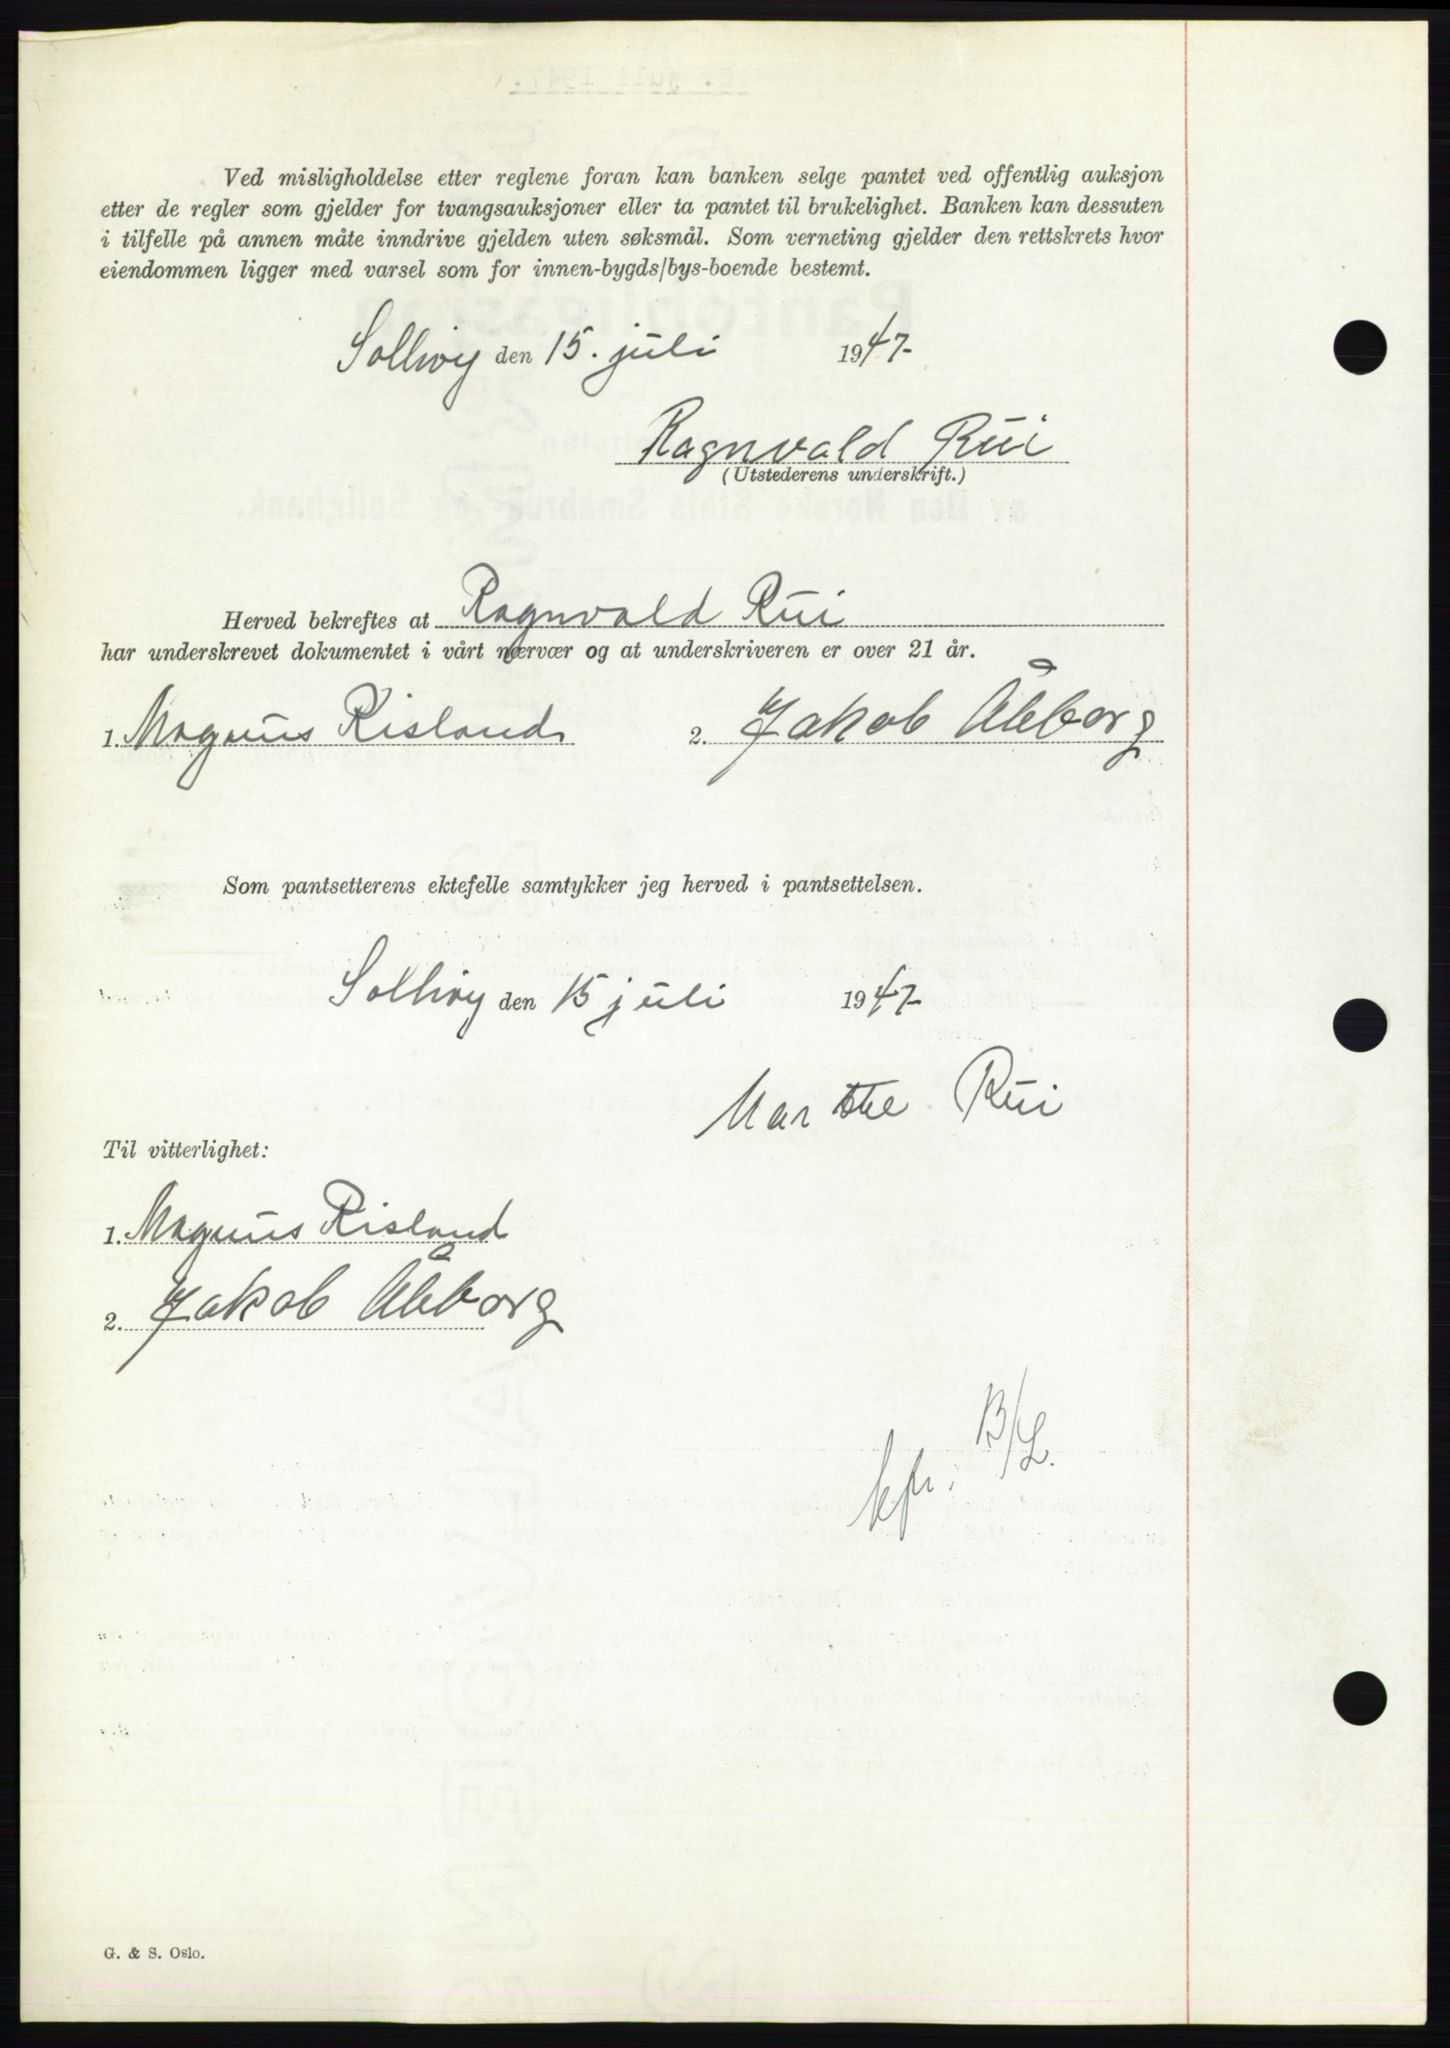 Ved misligholdelse etter reglene foran kan banken selge pantet ved offentlig auksjon
etter de regler som gjelder for tvangsauksjoner eller ta pantet til brukelighet. Banken kan dessuten
i tilfelle på annen måte inndrive gjelden uten søksmål. Som verneting gjelder den rettskrets hvor
eiendommen ligger med varsel som for innen-bygds/bys-boende bestemt.
den 15. juli 1947-
Ragnvald Rui
(Utstederens underskrift.)
Herved bekreftes at Ragnvald Rui
har underskrevet dokumentet i vårt nærvær og at underskriveren er over 21 år.
1. Magnus Risland 2. Jakob Åbborg
Som pantsetterens ektefelle samtykker jeg herved i pantsettelsen.
den 15 juli 1947-
Marthe Rui
Til vitterlighet:
1. Magnus Risland
2. Jakob Åbborg
B/L.
kfr.
G. & S. Oslo.